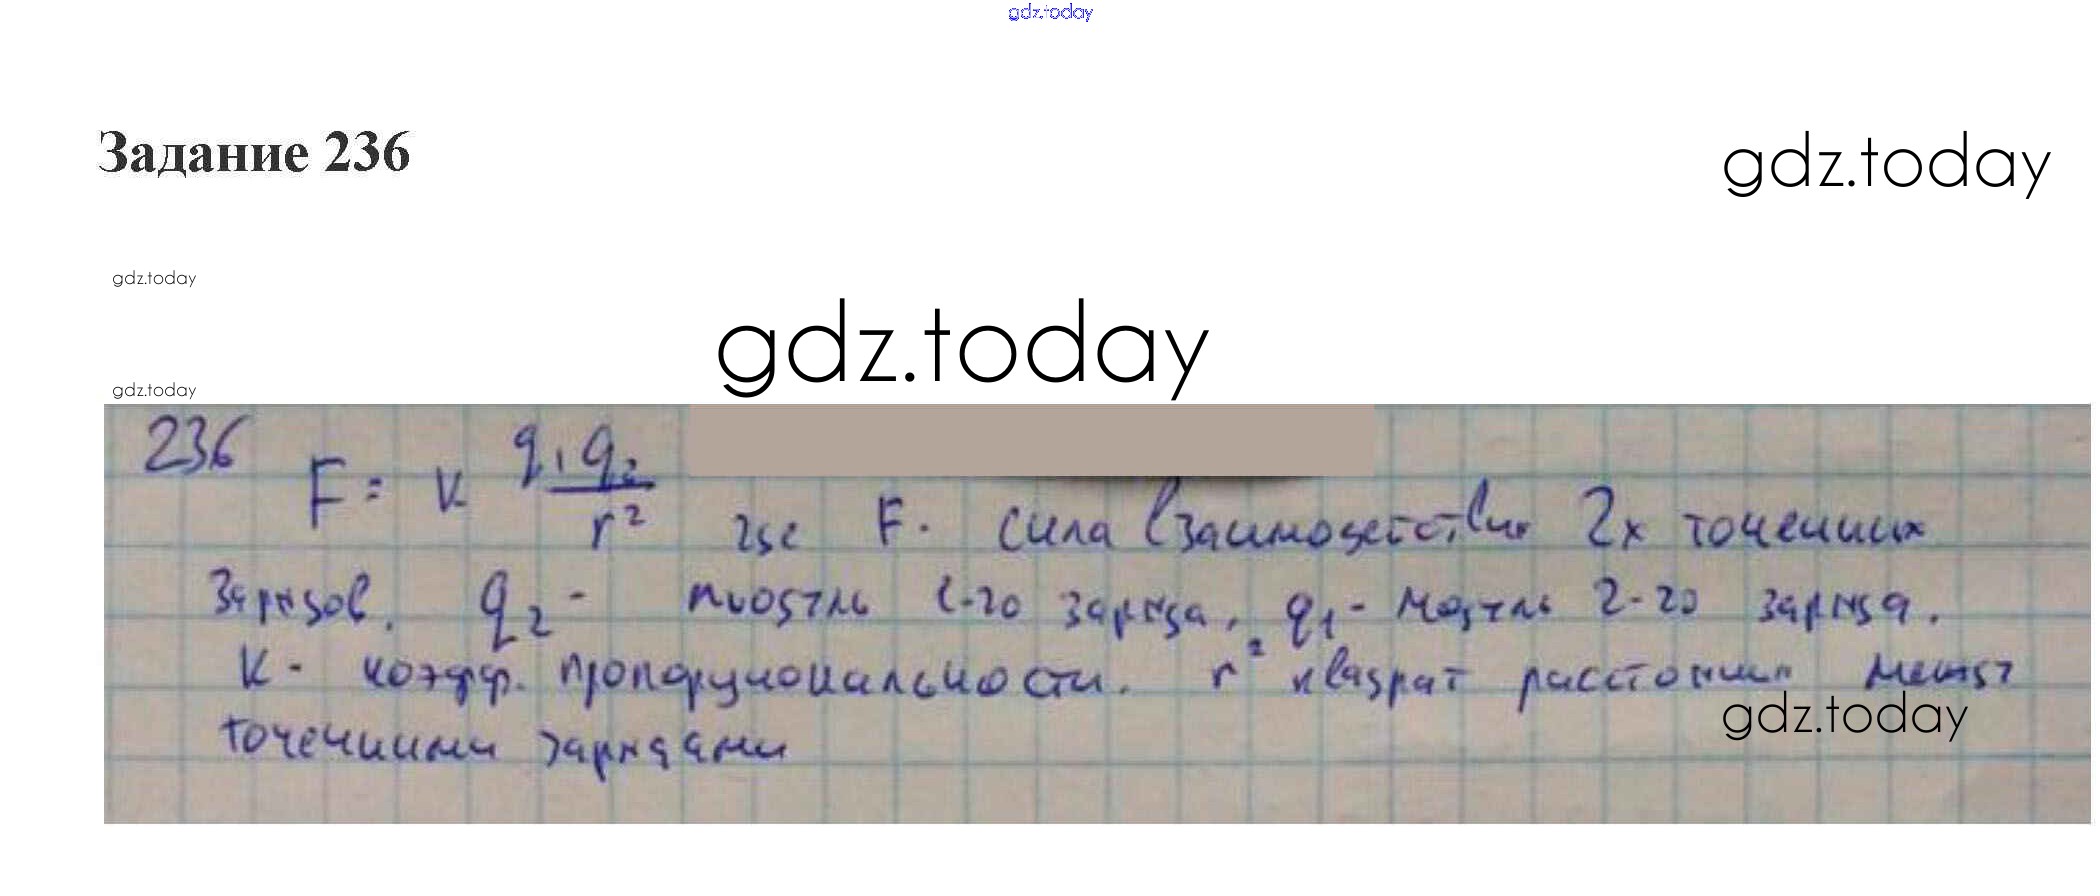 gdz.today
Задание 236
gdz.today
gdz.today
gdz.today
gdz.today
236
F = k q1 q2 / r²
где F - сила взаимодействия 2х точечных
зарядов. q2 - модуль 1-го заряда, q1 - модуль 2-го заряда.
К - коэфф. пропорциональности. r² квадрат расстояния между
gdz.today
точечными зарядами